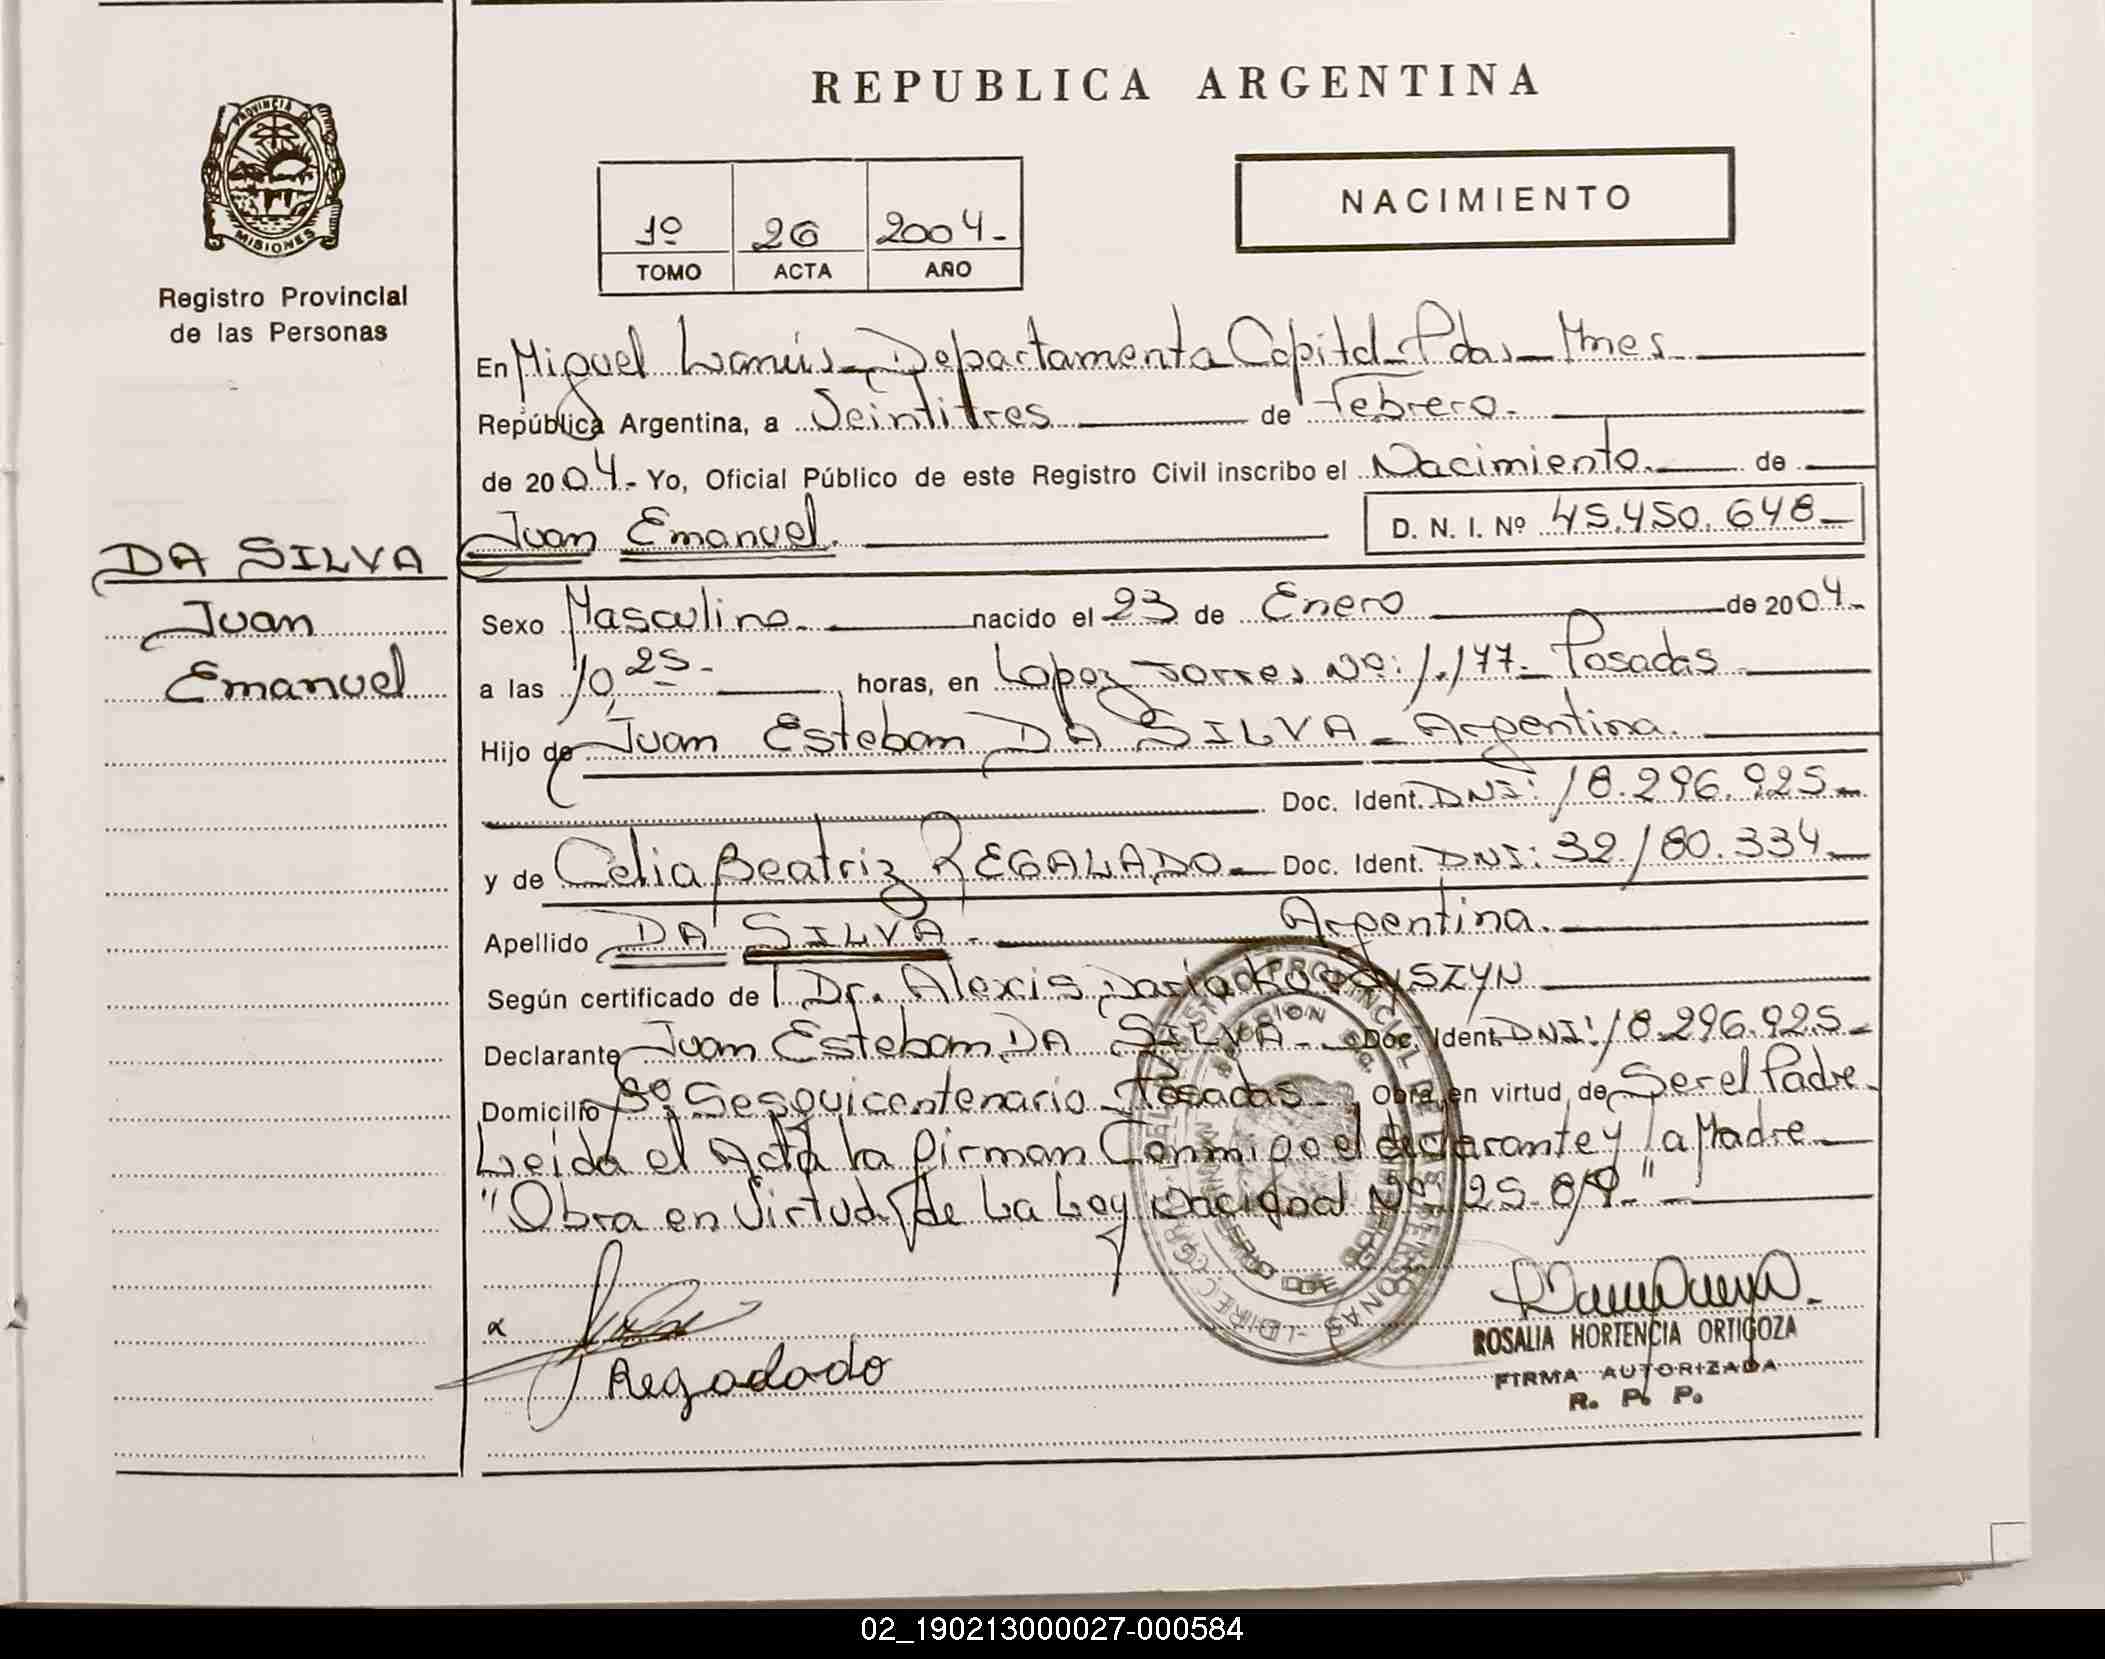 REPUBLICA ARGENTINA
PROVINCIA DE
MISIONES
Registro Provincial
de las Personas
1º 26 2004.-
TOMO ACTA AÑO
NACIMIENTO
En Miguel Lanús - Departamento Capital - Pdas - Mnes
República Argentina, a Veintitres de Febrero.
de 2004.- Yo, Oficial Público de este Registro Civil inscribo el Nacimiento. de
Juan Emanuel. D. N. I. Nº 45.450.648-
DA SILVA
Juan
Emanuel
Sexo Masculino. nacido el 23 de Enero de 2004.
a las 10,25- horas, en Lopez Torres Nº: 1.177- Posadas
Hijo de Juan Esteban DA SILVA - Argentina.
Doc. Ident. DNI: 18.296.925-
y de Celia Beatriz REGALADO- Doc. Ident. DNI: 32.180.334-
Apellido DA SILVA - Argentina.
Según certificado de Dr. Alexis
Declarante Juan Esteban DA SILVA - Doc. Ident. DNI: 18.296.925-
Domicilio Bº Sesquicentenario - Posadas - Obra en virtud de Ser el Padre
Leida el Acta la firman Conmigo el declarante y la Madre
"Obra en Virtud de La Ley Nacional Nº: 25.819-"
Regalado
ROSALIA HORTENCIA ORTIGOZA
FIRMA AUTORIZADA
R. P. P.
02_190213000027-000584